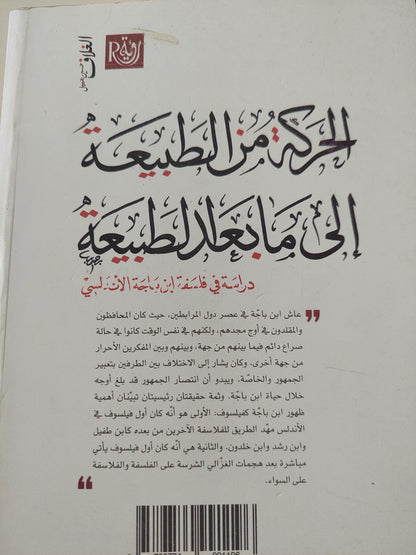 الغلاف
رؤية
R
الحركة من الطبيعة
إلى ما بعد الطبيعة
دراسة في فلسفة ابن باجة الأندلسي
عاش ابن باجّة في عصر دول المرابطين، حيث كان المحافظون
والمقلدون في أوج مجدهم، ولكنهم في نفس الوقت كانوا في حالة
صراع دائم فيما بينهم من جهة، وبينهم وبين المفكرين الأحرار
من جهة أخرى. وكان يشار إلى الاختلاف بين الطرفين بتعبير
الجمهور والخاصّة. ويبدو أن انتصار الجمهور قد بلغ أوجه
خلال حياة ابن باجّة. وثمة حقيقتان رئيسيتان تبيّنان أهمية
ظهور ابن باجّة كفيلسوف: الأولى هو أنّه كان أول فيلسوف في
الأندلس مهّد الطريق للفلاسفة الآخرين من بعده كابن طفيل
وابن رشد وابن خلدون. والثانية هي أنّه كان أول فيلسوف يأتي
مباشرة بعد هجمات الغزّالي الشرسة على الفلسفة والفلاسفة
على السواء.